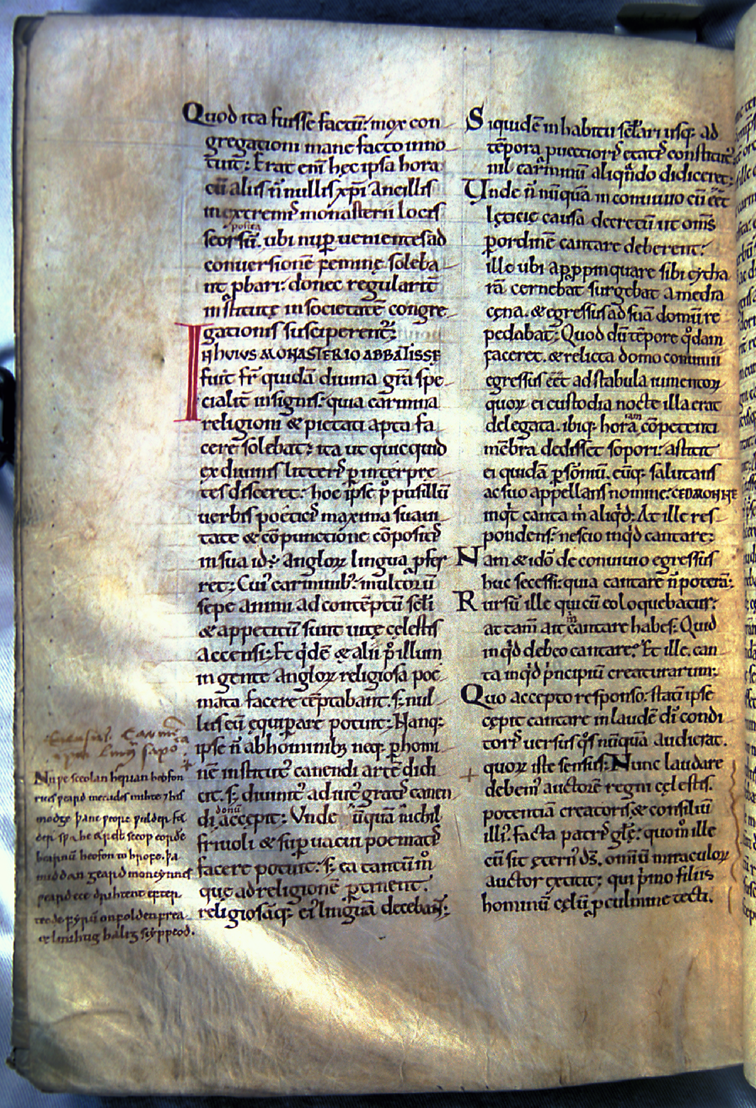 Quod ita fuisse factū. mox con
gregationi mane facto inno
tuit. Erat enī hęc ipsa hora
cū aliis n̄ nullis xp̄i ancillis
in extremis monasterii locis
seorsū posita. ubi nup uenientes ad
conuersionē feminę soleba
nt p̄bari. donec regularit̄
institutę in societatē congre
gationis susciperent᷑.
IN HUIUS MONASTERIO ABBATISSE
fuit fr̄ quidā diuina gr̄a spe
cialit̄ insignis. quia carmina
religioni & pietati apta fa
cere solebat. ita ut quicquid
ex diuinis litteris p interpre
tes disceret. hoc ipse p̄ pusillū
uerbis poeticis maxima suaui
tate & cōpunctione cōpositis
in sua id ÷ angloꝝ lingua pfer
ret. Cui᷒ carminib᷒ multorū
sepe animi ad contēptū sc̄li
& appetitū sunt uitę cęlestis
accensi. Et q̇dē & alii p̄ illum
in gente angloꝝ religiosa poe
mata facere tēptabant. s; nul
lus eū equipare potuit. Nanq;
ipse n̄ ab hominib᷒ neq; p homi
nē institut᷒ canendi artē didi
cit. s; diuinit᷒ adiut᷒ gratis canen
di donū accepit. Unde nūquā nichil
friuoli & supuacui poematis
facere potuit. s; ea tantūm̊
que ad religionē ptinent.
religiosāq; ei᷒ linguā decebant.
Siquidē in habitu sēlari usq; ad
tēpora puectioris ętatis constitut᷒
nil carminū aliq̇ndo didicerat.
Unde n̄ nūquā in conuiuio cū eēt
lęticię causa decretū ut om̄s
p ordinē cantare deberent.
ille ubi appropinquare sibi cytha
rā cernebat surgebat a media
cęna. & egressus ad suā domū re
pedabat. Quod dū tēpore q̇dam
faceret. & relicta domo conuiuii
egressus eēt ad stabula iumentoꝝ
quoꝝ ei custodia nocte illa erat
delegata. ibiq; hora cōpetenti
mēbra dedisset sopori. astitit
ei quidā p sōmū. eūq; salutans
ac suo appellans nomine. CEDMON INE
inq̇t canta m̊ aliq̇d. At ille res
pondens. nescio inq̇d cantare.
Nam & idō de conuiuio egressus
huc secessi. quia cantare n̄ poterā.
Rursū ille qui cū eo loquebatur.
at tam̄ ait m̊ cantare habes. Quid
inq̇d debeo cantare. Et ille. can
ta inq̇d p̊ncipiū creaturarum.
Quo accepto responso. statī ipse
cępit cantare in laudē dī condi
toris uersus q̊s nūquā audierat.
quoꝝ iste sensus. Nunc laudare
debem᷒ auctorē regni cęlestis.
potentiā creatoris & consiliū
illi᷒. facta patris gl̄ę. quom̊ ille
cū sit ętern᷒ dš. omniū miraculoꝝ
auctor extitit. qui p̊mo filiis
hominū cęlū p culmine tecti.
Nu ƿe sceolan heriᵹan heofon
rices ƿeard metudes mihte ⁊ his
modᵹeþanc ƿeorc ƿulder fa
der sƿa he
heofon to hrofe. þa
middan ᵹeard moncynnes
ƿeard ece drihtent efter
teode fyrū on foldum frea
ęlmihtiᵹ haliᵹ scyppeod.